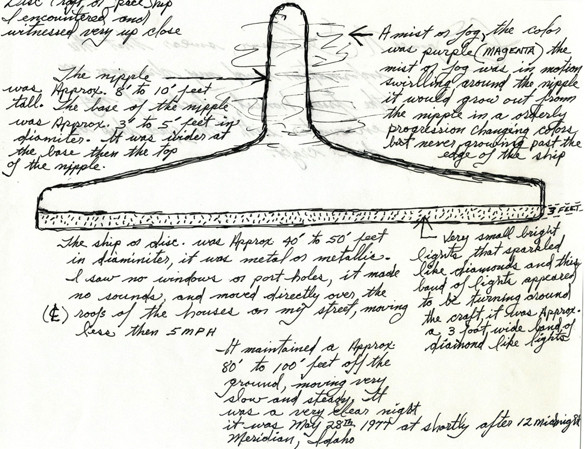 Disc craft, or space ship
I encountered, and
witnessed very up close
A mist or fog, the color
was purple (MAGENTA) the
mist or fog was in motion
swirlling around the nipple
it would grow out from
the nipple in a orderly
progression changing colors,
but never growing past the
edge of the ship
The nipple
was Approx. 8' to 10' feet
tall. The base of the nipple
was Approx. 3' to 5' feet in
diamiter. It was wider at
the base then the top
of the nipple.
3 FEET.
The ship or disc. was Approx 40' to 50' feet
in diaminiter, it was metal or metallic.
I saw no windows or port holes, it made
no sounds, and moved directly over the
roofs of the houses on my street, moving
less then 5 MPH
Very small bright
lights that sparkled
like diamonds and this
band of lights appeared
to be turning around
the craft, it was Approx.
a 3 foot wide band of
diamond like lights
It maintained a Approx
80' to 100' feet off the
ground, moving very
slow and steady. It
was a very clear night
it was May 28th 1977 at shortly after 12 midnight
Meridian, Idaho